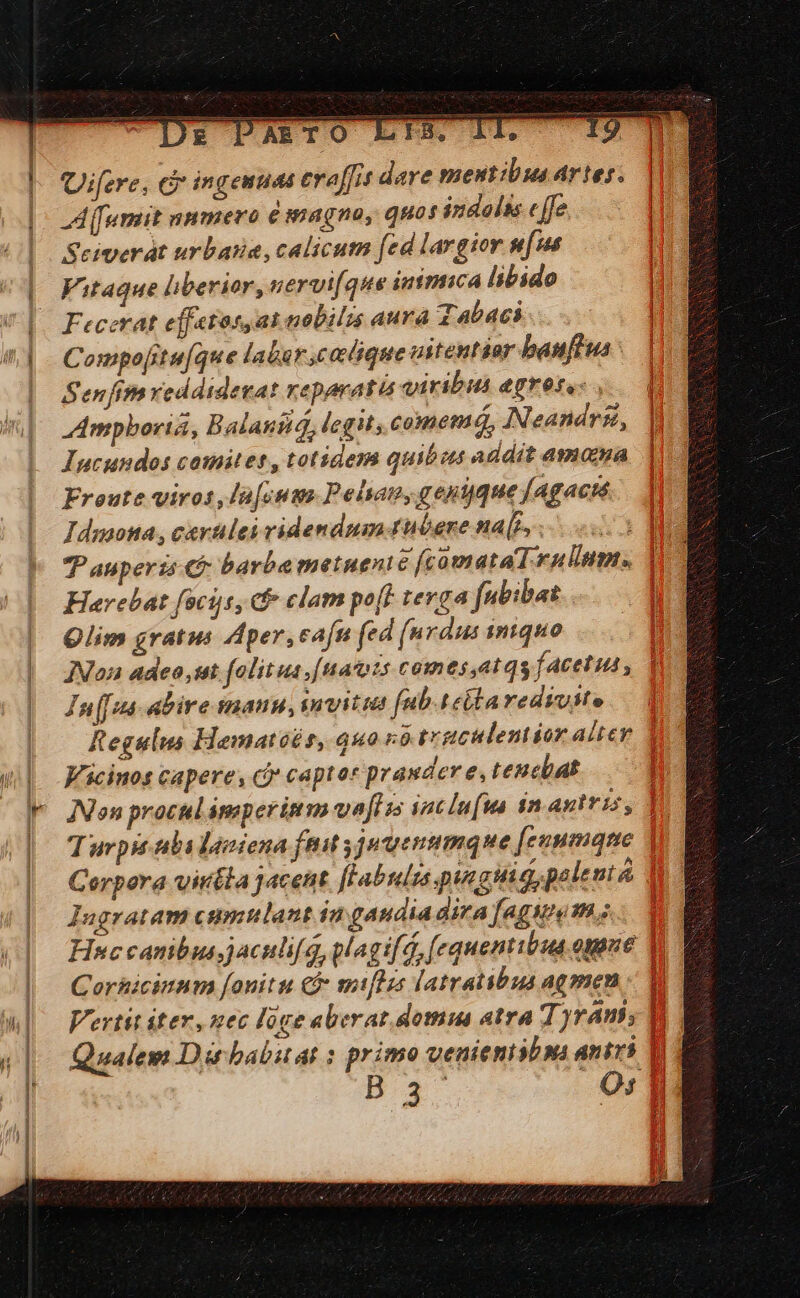 De Paeto Lib. II. 19
Viſere, & ingenuas craſſis dare mentibus artes.
Aſſumit numero è magno, quos indolis eſſe
Sciverat urbanæ, calicum ſed largior uſus
Vitaque liberior, nerviſque inimica libido
Fecerat effetos, at nobilis aura Tabaci
Compoſituſque labor, cœlique nitentior hauſtus
Senſim reddiderat reparatis viribus ægros.
Amphoriā, Balaniūq́, legit, comemq́, Neandrū,
Iucundos comites, totidem quibus addit amœna
Fronte viros, luſcum Pelian, genijque ſagacis
Idmona, cærulei ridendum tubere naſi,
Pauperis & barba metuentē ſcōmata Trullum.
Hærebat ſocijs, & clam poſt terga ſubibat
Olim gratus Aper, caſu ſed ſurdus iniquo
Non adeo, ut ſolitus, ſuavis comes, atq₃ facetus,
Iuſſus abire manu, invitus ſub tecta redivit.
Regulus Hematoës, quo nō truculentior alter
Vicinos capere, & captos prandere, tenebat
Non procul imperium vaſtis incluſus in antris,
Turpis ubi laniena fuit, juvenumque ſenumque
Corpora vincta jacent ſtabulis, pinguiq́, polentâ
Ingratam cumulant in gaudia dira ſaginam.
Huc canibus, jaculiſq́, plagiſq́, ſequentibus omne
Cornicinum ſonitu & miſtis latratibus agmen
Vertit iter, nec lōge aberat domus atra Tyrāni,
Qualem Dis habitat : primo venientibus antri
B 3 Os